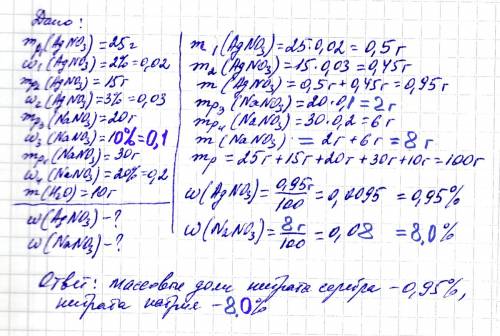 Дано:
mр₁(AgNO₃)=25г
ω₁(AgNO₃)=2%=0,02
mр₂(AgNO₃)=15г
ω₂(AgNO₃)=3%=0,03
mр₃(NaNO₃)=20г
ω₃(NaNO₃)=10%=0,1
mр₄(NaNO₃)=30г
ω₄(NaNO₃)=20%=0,2
m(H₂O)=10г
ω(AgNO₃)-?
ω(NaNO₃)-?
m₁(AgNO₃)=25·0,02=0,5г
m₂(AgNO₃)=15·0,03=0,45г
m(AgNO₃)=0,5г+0,45г=0,95г
mр₃(NaNO₃)=20·0,1=2г
mр₄(NaNO₃)=30·0,2=6г
m(NaNO₃)=2г+6г=8г
mр=25г+15г+20г+30г+10г=100г
ω(AgNO₃)=0,95г/100=0,0095=0,95%
ω(NaNO₃)=8г/100=0,08=8,0%
Ответ: массовые доли нитрата серебра -0,95%,
нитрата натрия -8,0%